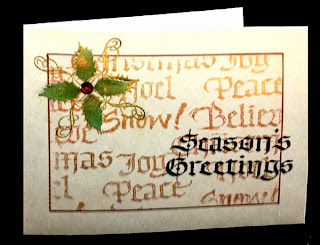 Christmas Joy
Noel Peace
Snow! Believe
Season's
mas Joy
Greetings
el Peace
Snow!